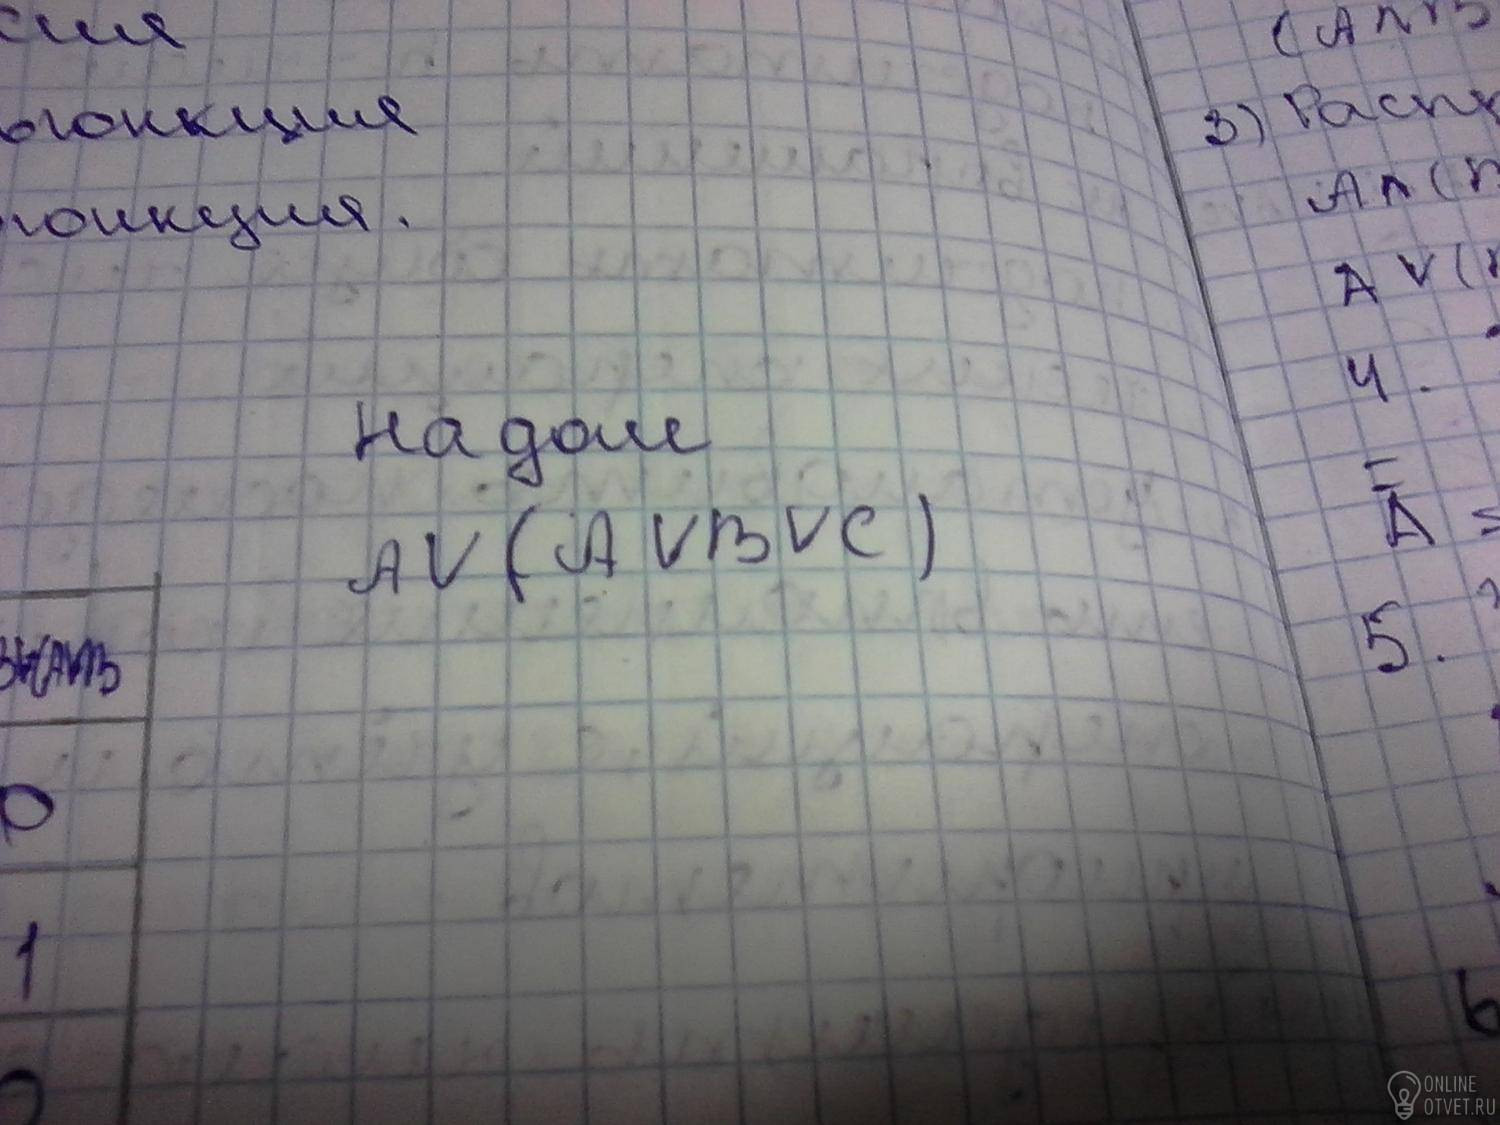 сия
ъюнкция
юнкция.
На дом
AV(AVBVC)
0
1
3) Распр
A∧(
AV(
4.
A̿ =
5.
6
ONLINE
OTVET.RU